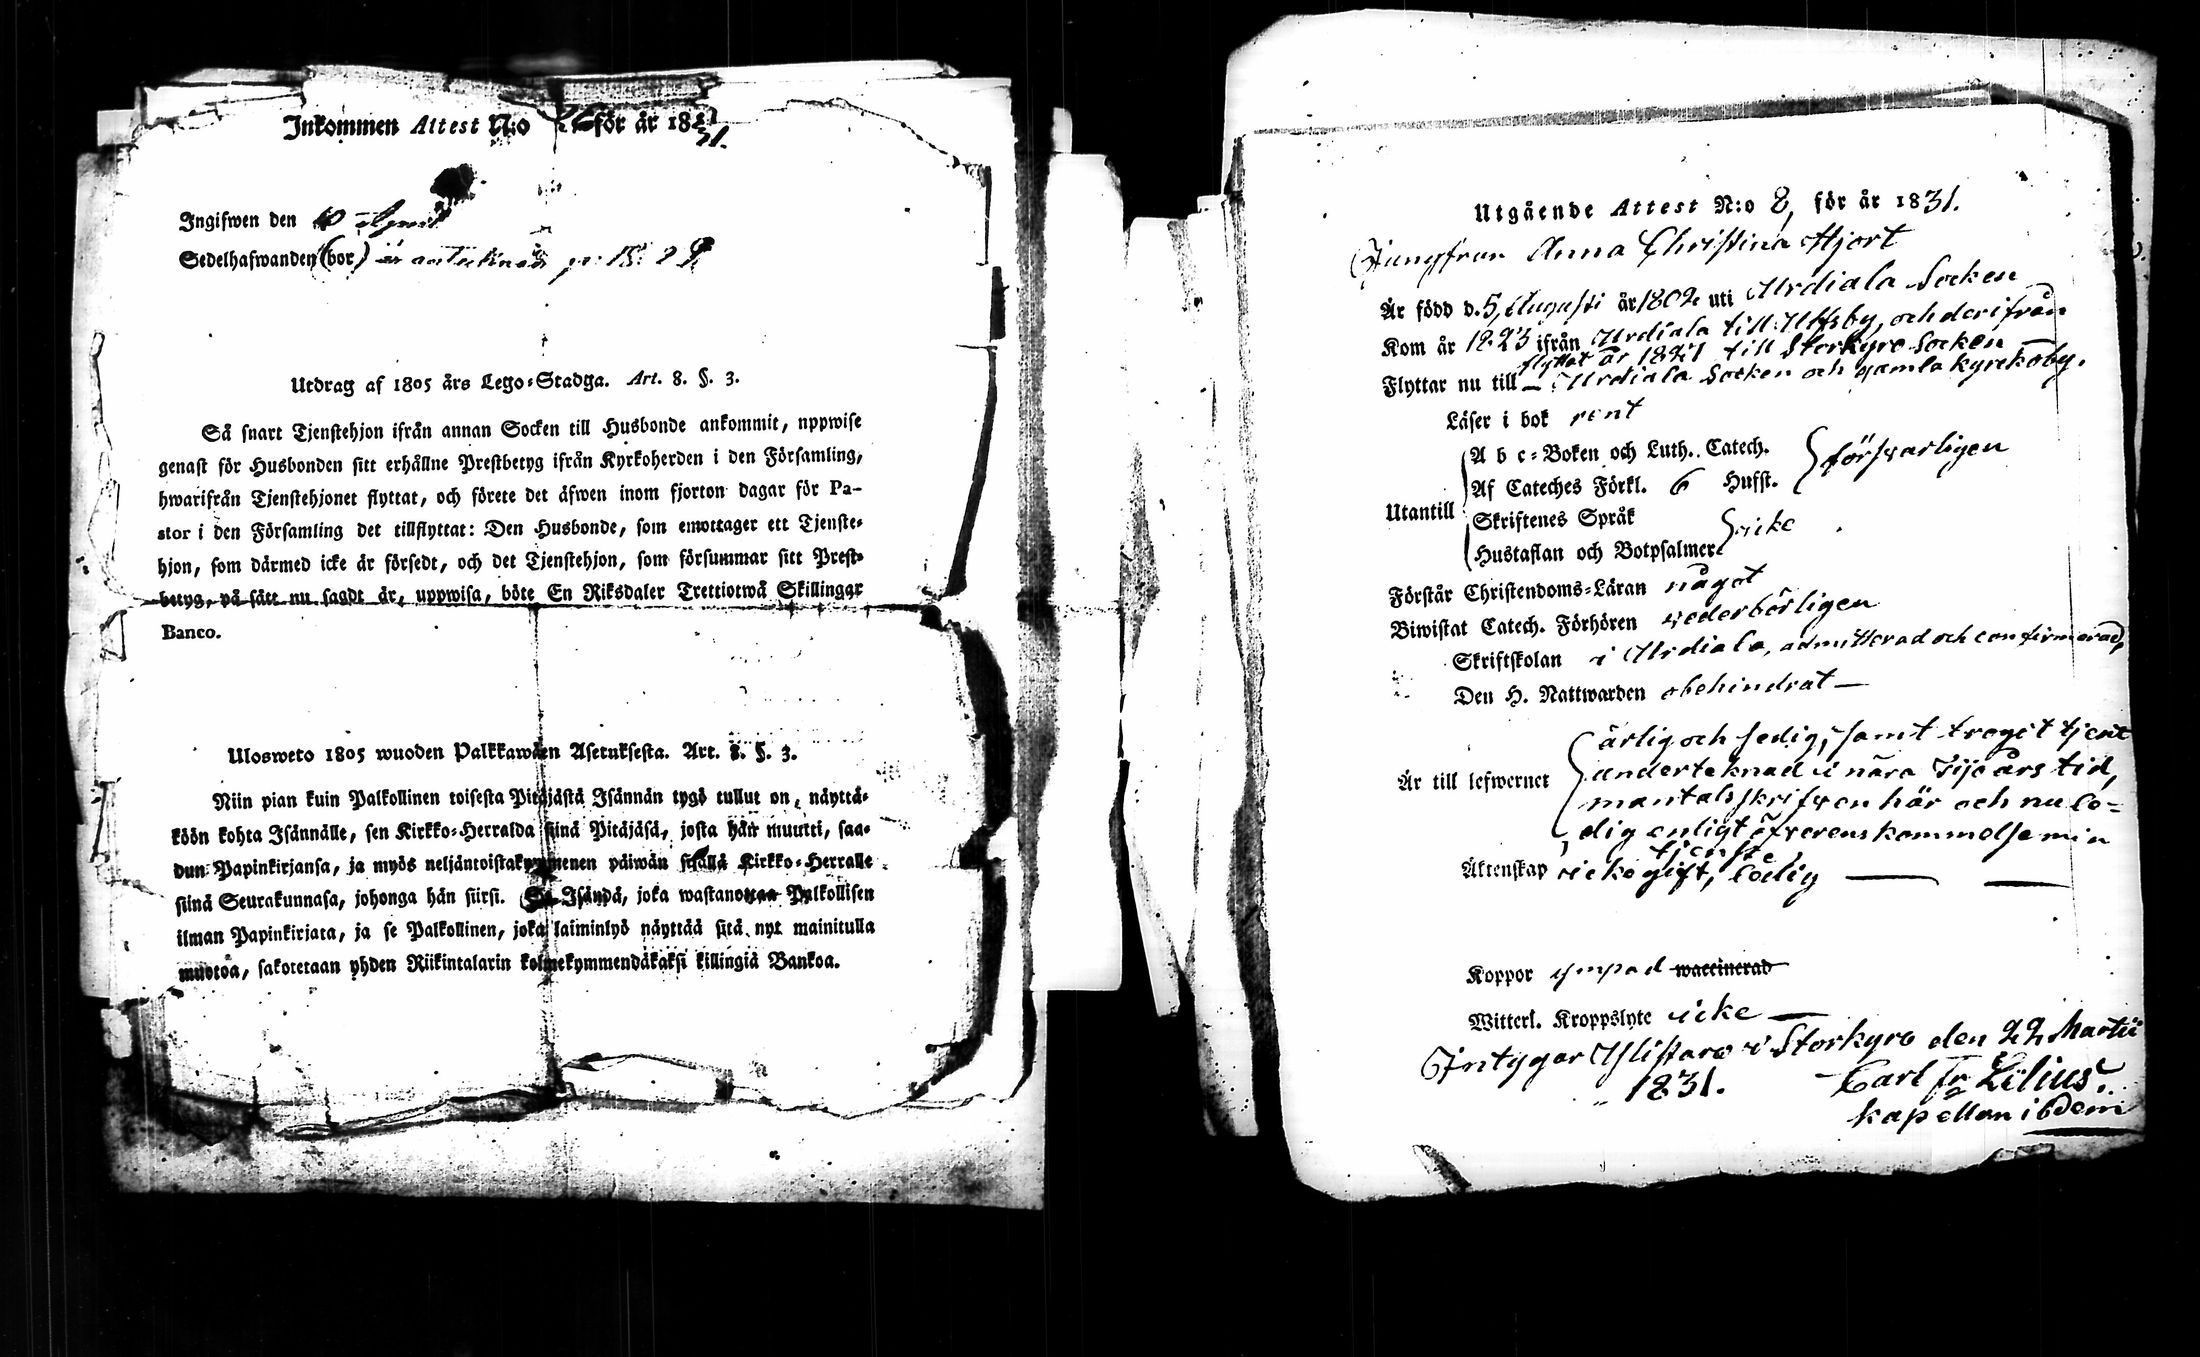 Inkommen Attest N:o 26 för år 1831.
Ingifwen den 10 April
Sedelhafwanden (bor) är antecknad p: 152
Utdrag af 1805 års Lego-Stadga. Art. 8. §. 3.
Så snart Tjenstehjon ifrån annan Socken till Husbonde ankommit, uppwise
genast för Husbonden sitt erhållne Prestbetyg ifrån Kyrkoherden i den Församling,
hwarifrån Tjenstehjonet flyttat, och förete det äfwen inom fjorton dagar för Pa-
stor i den Församling det tillflyttat: Den Husbonde, som emottager ett Tjenste-
hjon, som därmed icke är försedt, och det Tjenstehjon, som försummar sitt Prest-
betyg, på sätt nu sagdt är, uppwisa, böte En Riksdaler Trettiotwå Skillingar
Banco.
Ulosweto 1805 wuoden Palkkawäen Asetuksesta. Art. 8. §. 3.
Niin pian kuin Palkollinen toisesta Pitäjästä Isännän tygö tullut on, näyttä-
köön kohta Isännälle, sen Kirkko-Herralda siinä Pitäjäsä, josta hän muutti, saa-
dun Papinkirjansa, ja myös neljäntoistakymmenen päiwän sisällä Kirkko-Herralle
siinä Seurakunnasa, johonga hän siirsi. Se Isändä, joka wastanottaa Palkollisen
ilman Papinkirjata, ja se Palkollinen, joka laiminlyö näyttää sitä nyt mainitulla
muotoa, sakotetaan yhden Riikintalarin kolmekymmendäkaksi killingiä Bankoa.
Utgående Attest N:o 8, för år 1831.
Jungfrun Anna Christina Hjort
Är född d. 5 Augusti år 1802 uti Urdiala Socken
Kom år 1823 ifrån Urdiala till Ulfsby, och derifrån
flyttat år 1827 till Storkyro Socken
Flyttar nu till — Urdiala Socken och gamla kyrckoby.
Läser i bok rent
A b c-Boken och Luth. Catech.
Af Cateches Förkl. 6 Hufst.
försvarligen
Utantill
Skriftenes Språk
Hustaflan och Botpsalmer
icke
Förstår Christendoms-Läran något
Biwistat Catech. Förhören vederbörligen
Skriftskolan i Urdiala, admitterad och confirmerad,
Den H. Nattwarden obehindrat —
ärlig och sedig, samt troget tjent
Är till lefwernet underteknad i nära Tijo års tid,
mantalsskrifven här och nu le-
dig enligt öfverenskommelse min
tjenst
Äktenskap icke gift, ledig
Koppor ympad waccinerad
Witterl. Kroppslyte icke —
Intygar Ylistaro i Storkyro den 22 Martii
1831. Carl Fr Lilius.
kapellan ibdem